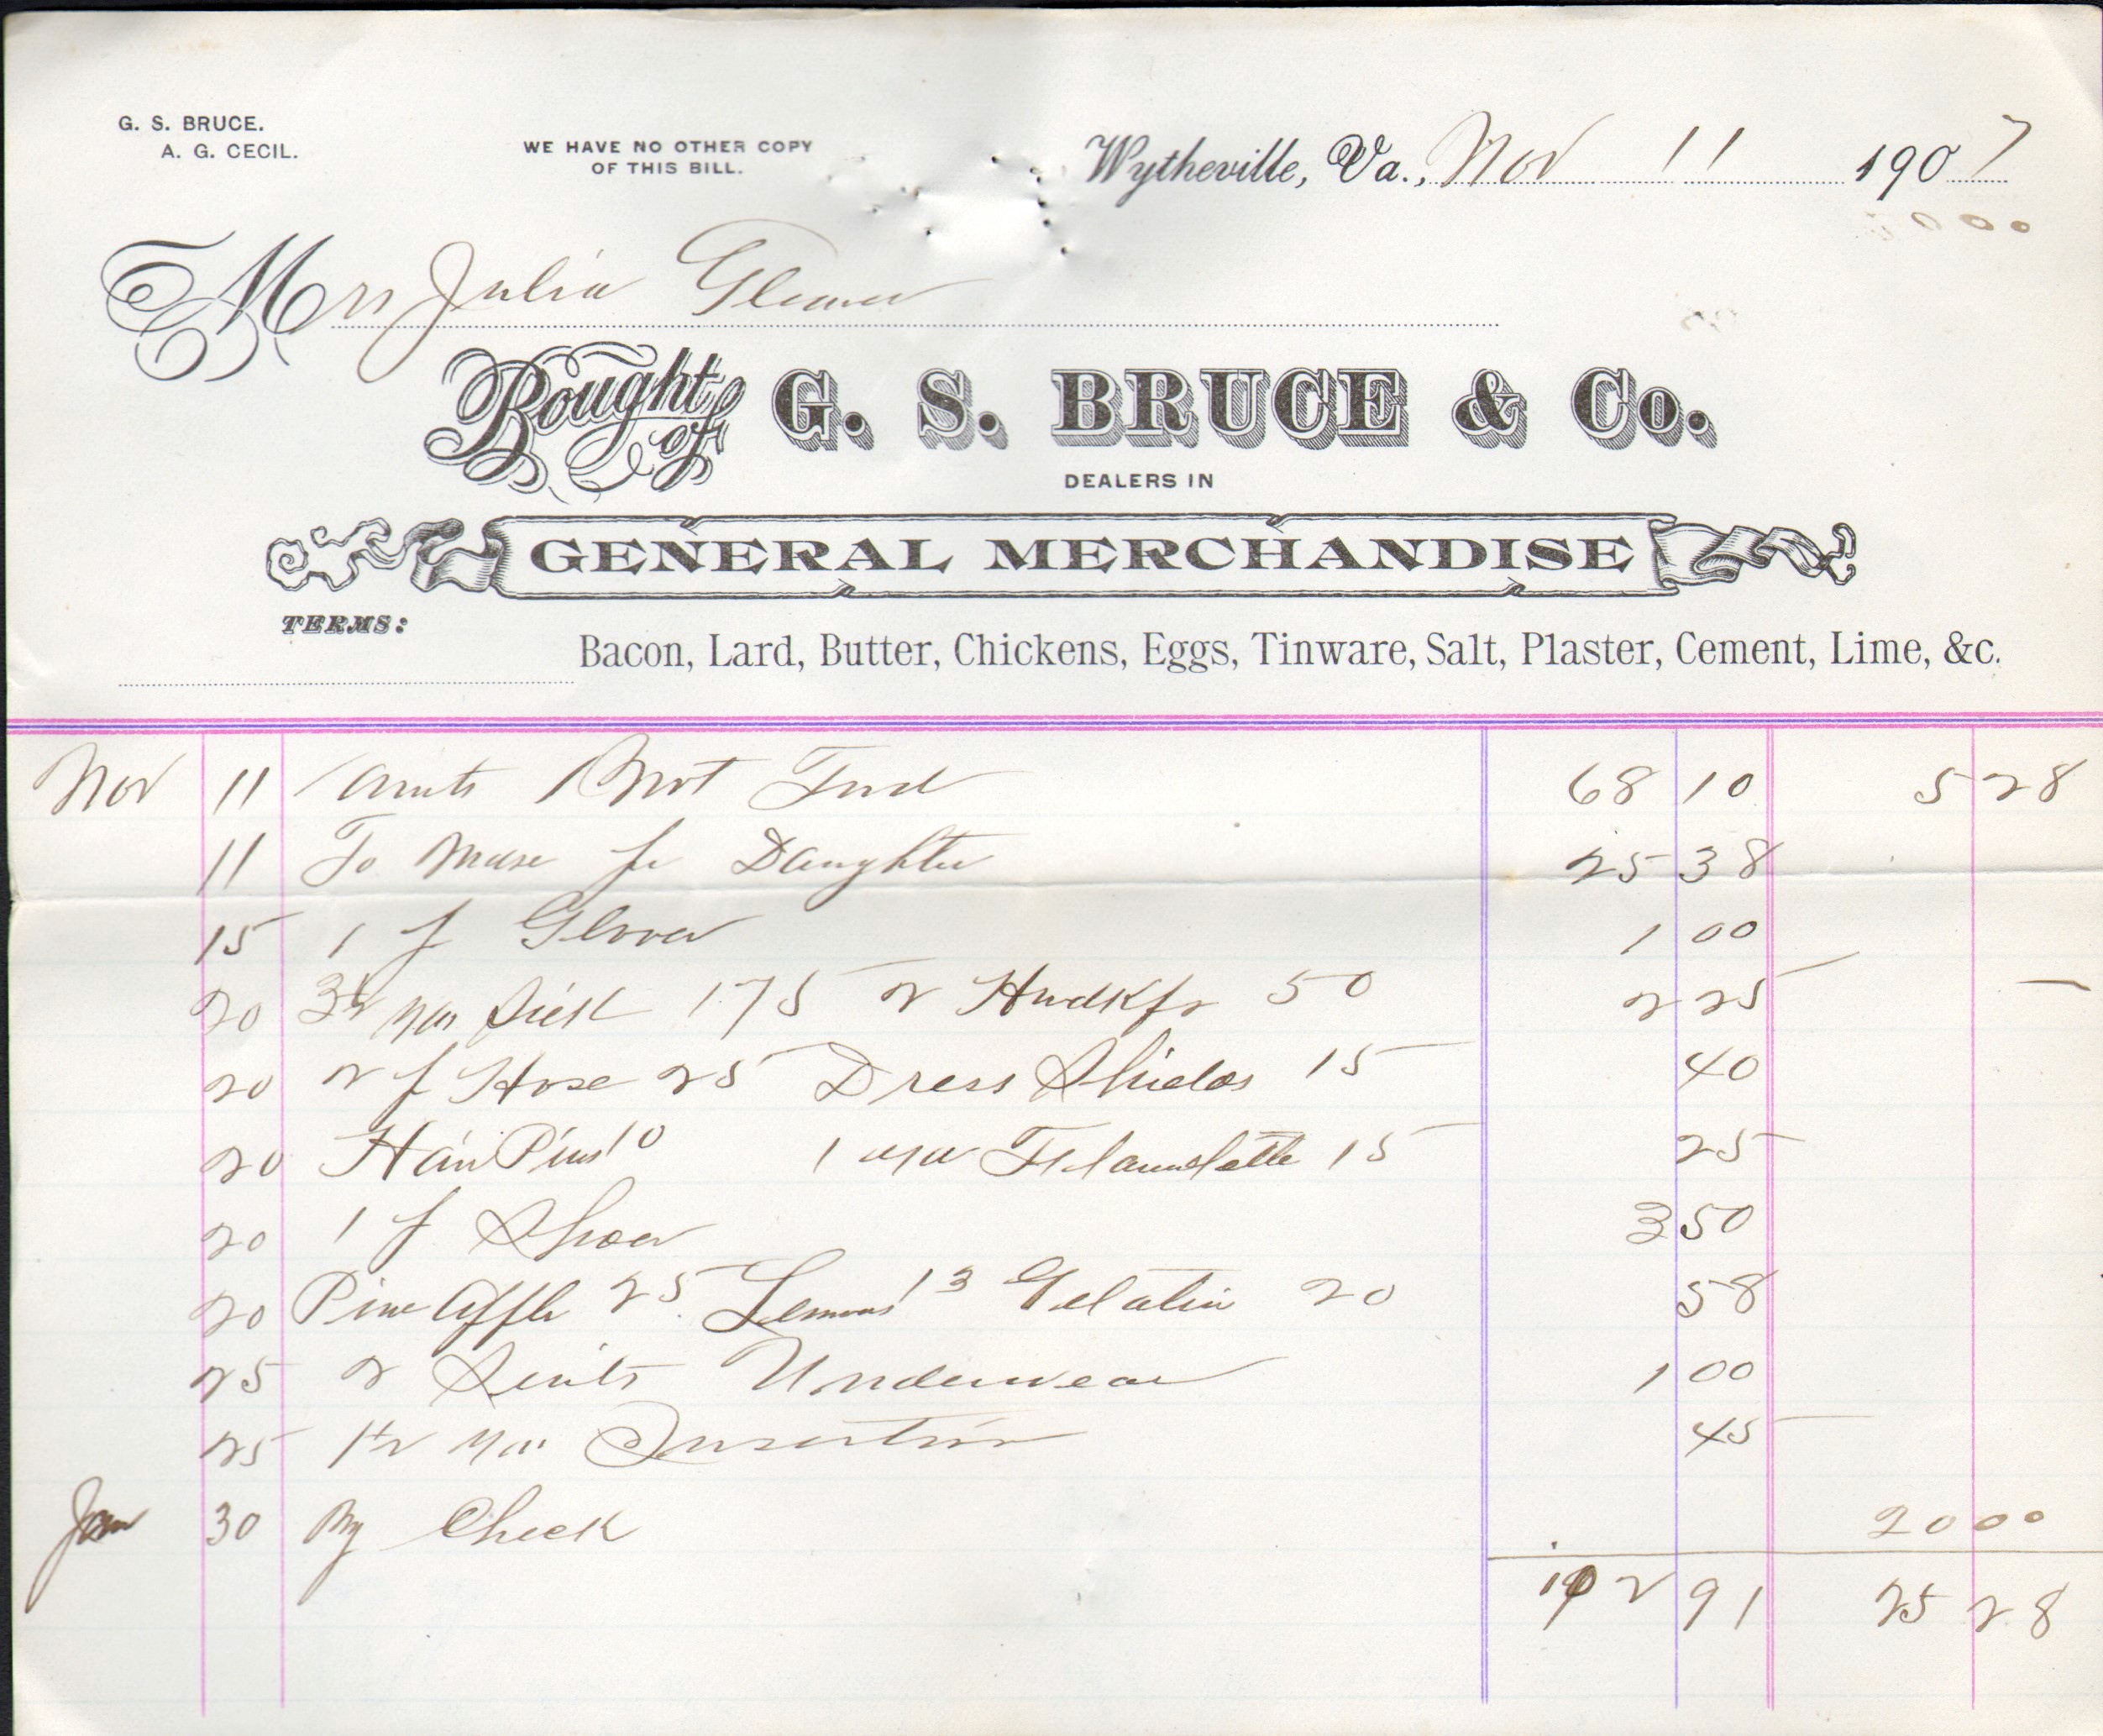 G. S. BRUCE.
A. G. CECIL.
WE HAVE NO OTHER COPY
OF THIS BILL.
Wytheville, Va., Nov 11 1907
Mrs Julia
Bought of G. S. BRUCE & Co.
DEALERS IN
GENERAL MERCHANDISE
TERMS:
Bacon, Lard, Butter, Chickens, Eggs, Tinware, Salt, Plaster, Cement, Lime, &c.
Nov 11 Amts 68 10 5 28
11 To Mdse for Daughter 25 38
15 1 p Gloves 1 00
20 Silk 175 2 Hndkfs 50 2 25
20 2 p Hose 25 Dress Shields 15 40
20 Hair Pins 10 1 Flannelette 15 25
20 1 p Shoes 3 50
20 Pine Apple 25 Lemons 13 Gelatin 20 58
25 2 Suits Underwear 1 00
25 Insertion 45
Jan 30 By Check 20 00
102 91 25 28